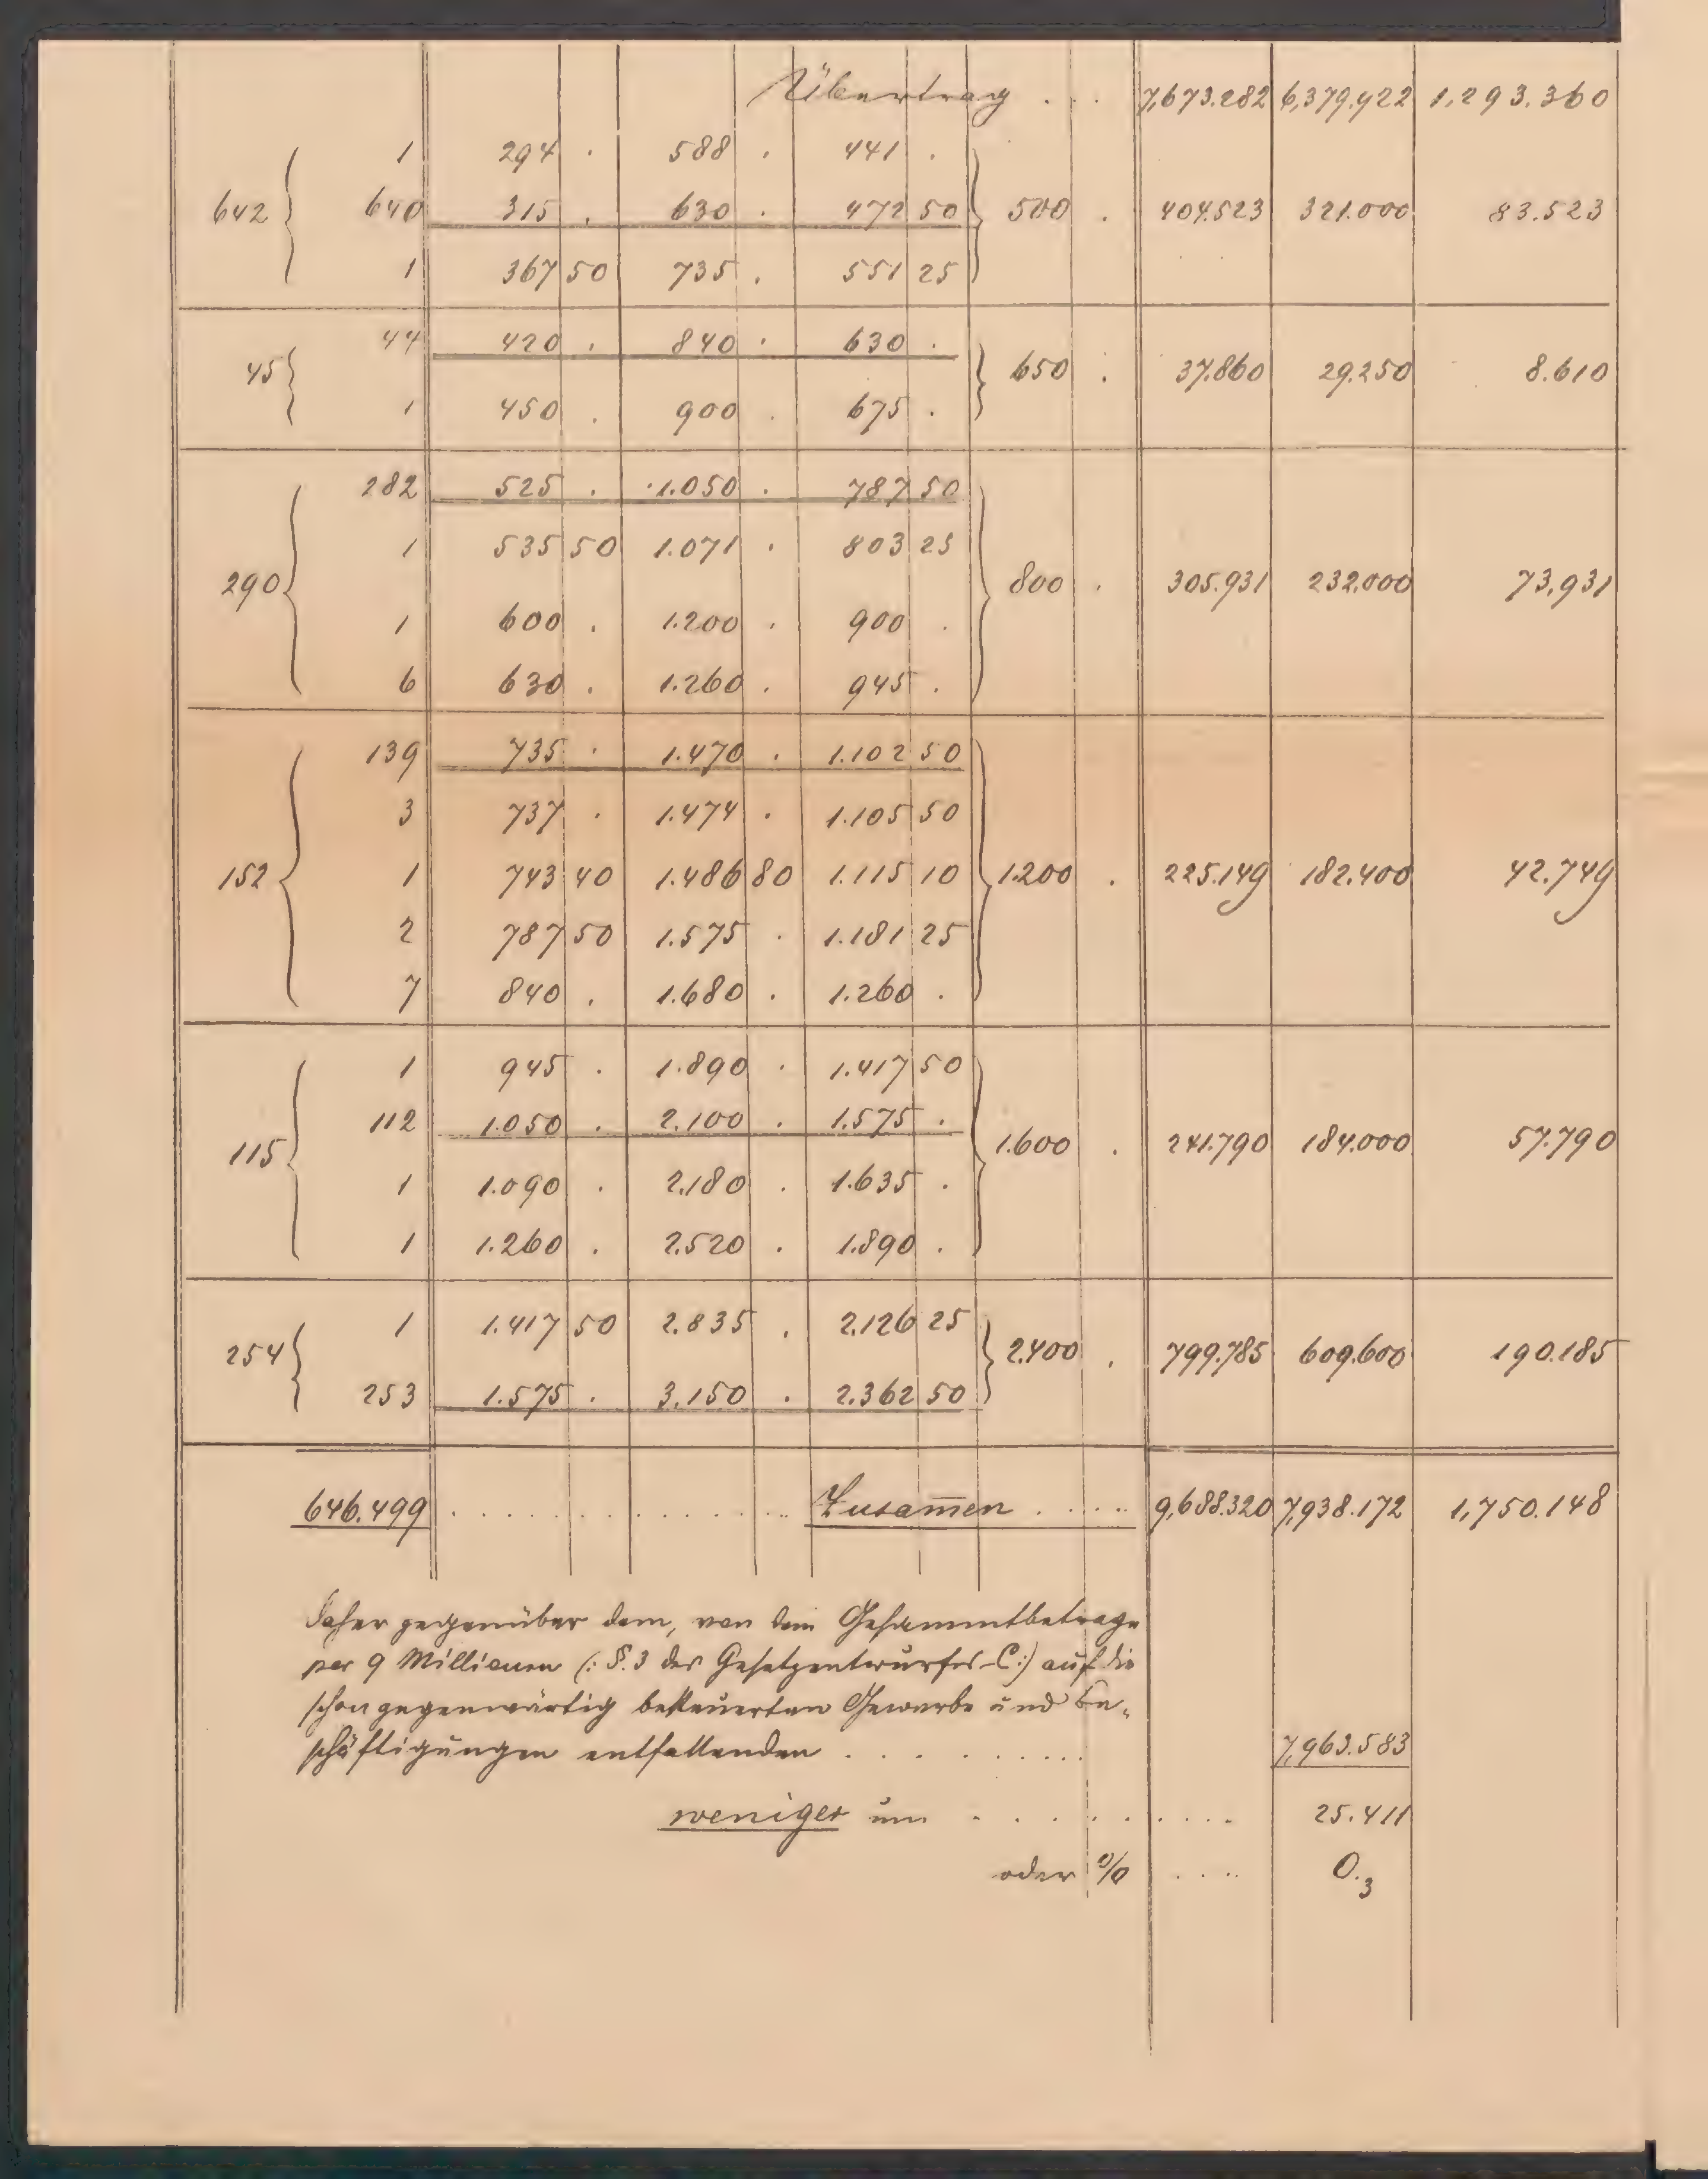 Übertrag . . . 7,673.282 6,379.922 1,293.360
1 294 . 588 . 441 .
642 { 640 315 . 630 . 472 50 } 500 . 404.523 321.000 83.523
1 367 50 735 . 551 25
44 420 . 840 . 630 .
45 { } 650 . 37.860 29.250 8.610
1 450 . 900 . 675 .
282 525 . 1.050 . 787 50
1 535 50 1.071 . 803 25
290 { } 800 . 305.931 232.000 73.931
1 600 . 1.200 . 900 .
6 630 . 1.260 . 945 .
139 735 . 1.470 . 1.102 50
3 737 . 1.474 . 1.105 50
152 { 1 743 40 1.486 80 1.115 10 } 1.200 . 225.149 182.400 42.749
2 787 50 1.575 . 1.181 25
7 840 . 1.680 . 1.260 .
1 945 . 1.890 . 1.417 50
112 1.050 . 2.100 . 1.575 .
115 { } 1.600 . 241.790 184.000 57.790
1 1.090 . 2.180 . 1.635 .
1 1.260 . 2.520 . 1.890 .
1 1.417 50 2.835 . 2.126 25
254 { } 2.400 . 799.785 609.600 190.185
253 1.575 . 3.150 . 2.362 50
646.499 . . . . . . Zusam̄en . . . . 9,688.320 7,938.172 1,750.148
Daher gegenüber dem, von dem Gesammtbetrage
per 9 Millionen (: §. 3 des Gesetzentwurfes C:) auf die
schon gegenwärtig besteuerten Gewerbe und Be-
schäftigungen entfallenden . . . . . . . . 7,963.583
weniger um . . . . . . . . . 25.411
oder % . . . . 0.3